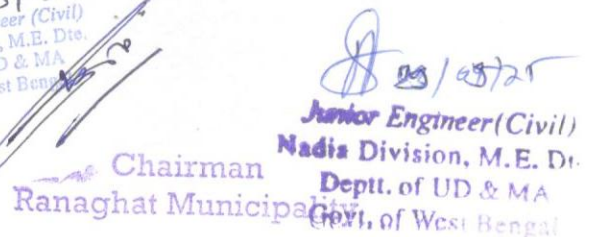 eer (Civil)
, M.E. Dte.
D & MA
st Beng
Chairman
Ranaghat Municipality
Junior Engineer (Civil)
Nadia Division, M.E. Dt.
Deptt. of UD & MA
Govt. of West Bengal